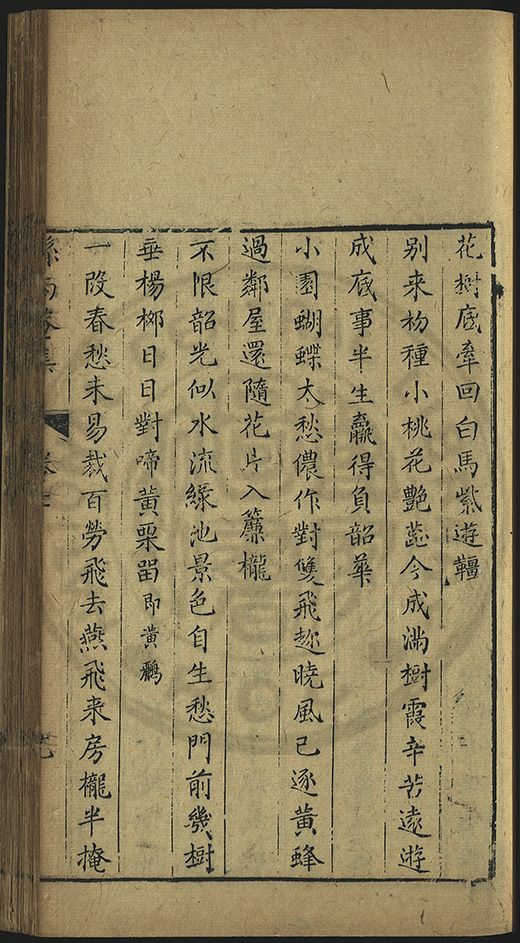 花樹底牽回白馬紫遊韁
別来初種小桃花艷蕋今成滿樹霞辛苦遠遊
成底事半生贏得負韶華
小園蝴蝶太愁儂作對雙飛趂曉風已逐黃蜂
過鄰屋還隨花片入簾櫳
不恨韶光似水流綠池景色自生愁門前幾樹
垂楊栁日日對啼黃栗畱即黃鸝
一段春愁未易裁百勞飛去燕飛来房櫳半掩